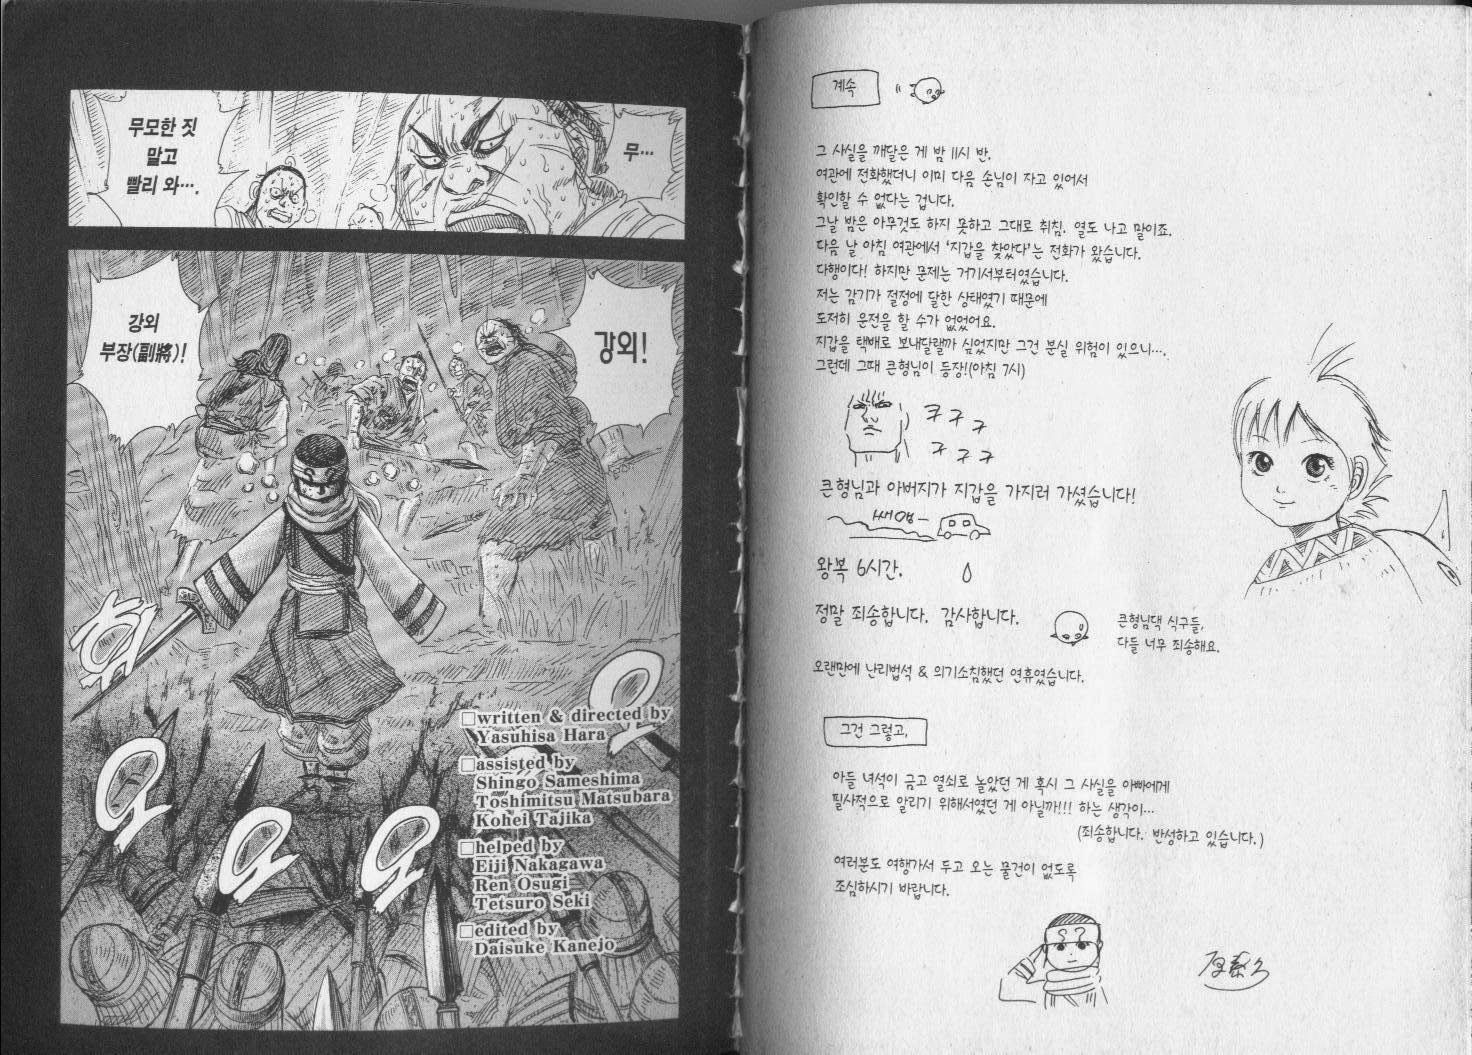 무모한 짓
말고
빨리 와….
무…
강외
부장(副將)!
강외!
화
오
오
오
오
□written & directed by
Yasuhisa Hara
□assisted by
Shingo Sameshima
Toshimitsu Matsubara
Kohei Tajika
□helped by
Eiji Nakagawa
Ren Osugi
Tetsuro Seki
□edited by
Daisuke Kanejo
계속
그 사실을 깨달은 게 밤 11시 반.
여관에 전화했더니 이미 다음 손님이 자고 있어서
확인할 수 없다는 겁니다.
그날 밤은 아무것도 하지 못하고 그대로 취침. 열도 나고 말이죠.
다음 날 아침 여관에서 '지갑을 찾았다'는 전화가 왔습니다.
다행이다! 하지만 문제는 거기서부터였습니다.
저는 감기가 절정에 달한 상태였기 때문에
도저히 운전을 할 수가 없었어요.
지갑을 택배로 보내달랄까 싶었지만 그건 분실 위험이 있으니….
그런데 그때 큰형님이 등장!(아침 7시)
쿠구구
구구구
큰형님과 아버지가 지갑을 가지러 가셨습니다!
쌔앵–
왕복 6시간.
정말 죄송합니다. 감사합니다.
큰형님댁 식구들,
다들 너무 죄송해요.
오랜만에 난리법석 & 의기소침했던 연휴였습니다.
그건 그렇고,
아들 녀석이 금고 열쇠로 놀았던 게 혹시 그 사실을 아빠에게
필사적으로 알리기 위해서였던 게 아닐까!!! 하는 생각이…
(죄송합니다. 반성하고 있습니다.)
여러분도 여행가서 두고 오는 물건이 없도록
조심하시기 바랍니다.